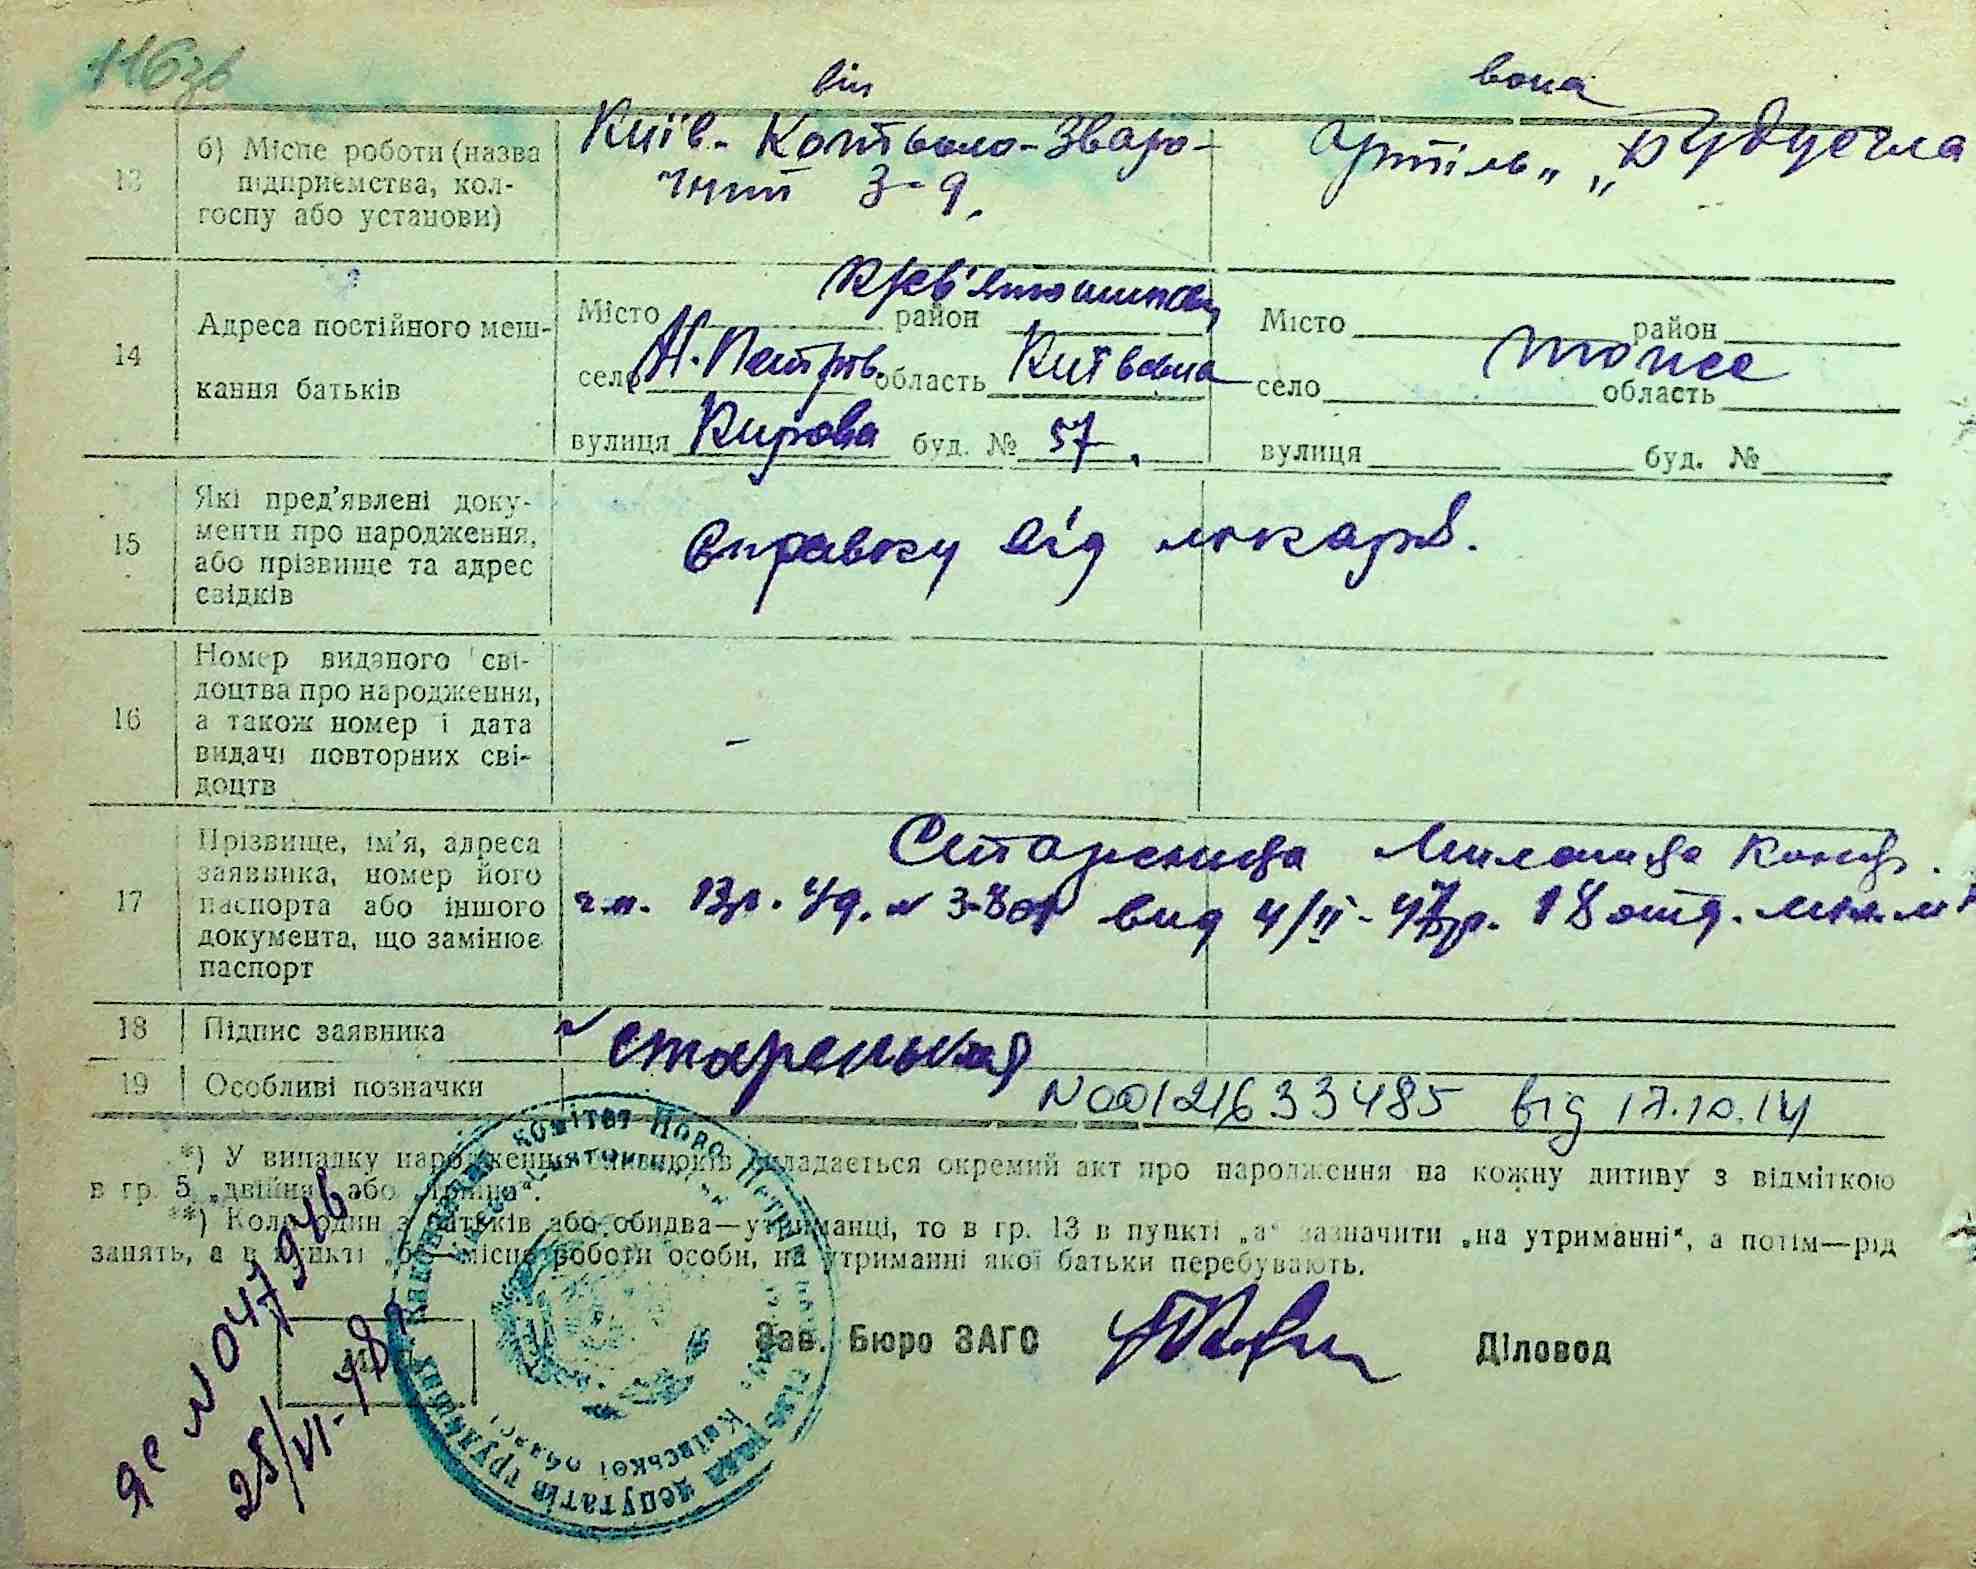 116зв
він вона
13 б) Місце роботи (назва підприємства, кол-
госпу або установи)
Київ-Котъоло-Зваро-
чний З-д.
Артіль „
14 Адреса постійного меш-
кання батьків
Місто район
село Н. Петрів. область Київська
вулиця Кирова буд. № 57.
Місто район
тоже
село область
вулиця буд. №
15 Які пред'явлені доку-
менти про народження,
або прізвище та адрес
свідків
Справку від лікарв.
16 Номер виданого сві-
доцтва про народження,
а також номер і дата
видачі повторних сві-
доцтв
-
17 Прізвище, ім'я, адреса
заявника, номер його
паспорта або іншого
документа, що замінює
паспорт
вид 4/ІІ-47р. 18 отд.
18 Підпис заявника
Старенькая
19 Особливі позначки
N00121633485 від 17.10.14
*) У випадку народження близнюків складається окремий акт про народження на кожну дитину з відміткою
в гр. 5 „двійня“ або „трійня“.
**) Коли один з батьків або обидва—утриманці, то в гр. 13 в пункті „а“ зазначити „на утриманні“, а потім—рід
занять, а в пункті „б“—місце роботи особи, на утриманні якої батьки перебувають.
Зав. Бюро ЗАГС Діловод
ЯЄ N 047946
25/VI-48р